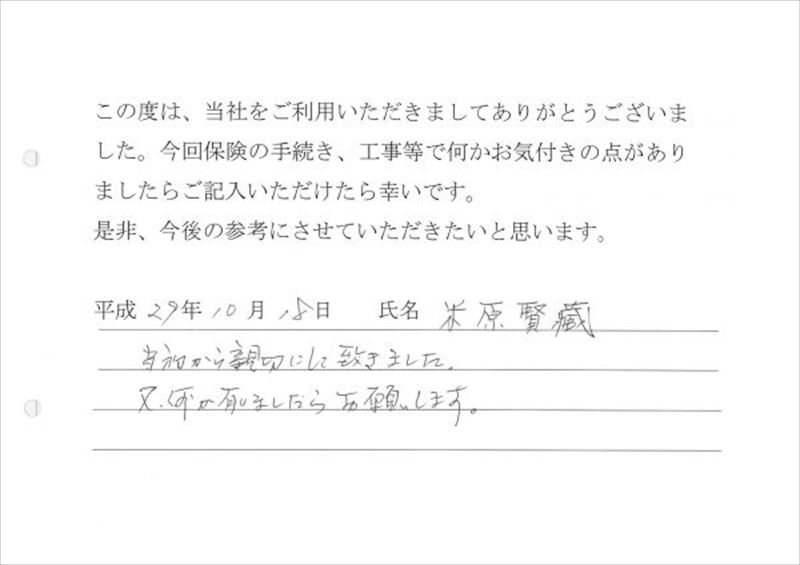 この度は、当社をご利用いただきましてありがとうございま
した。今回保険の手続き、工事等で何かお気付きの点があり
ましたらご記入いただけたら幸いです。
是非、今後の参考にさせていただきたいと思います。
平成 29年 10月 18日 氏名 米原賢蔵
から親切にして致きました。
又、何か有りましたらお願いします。